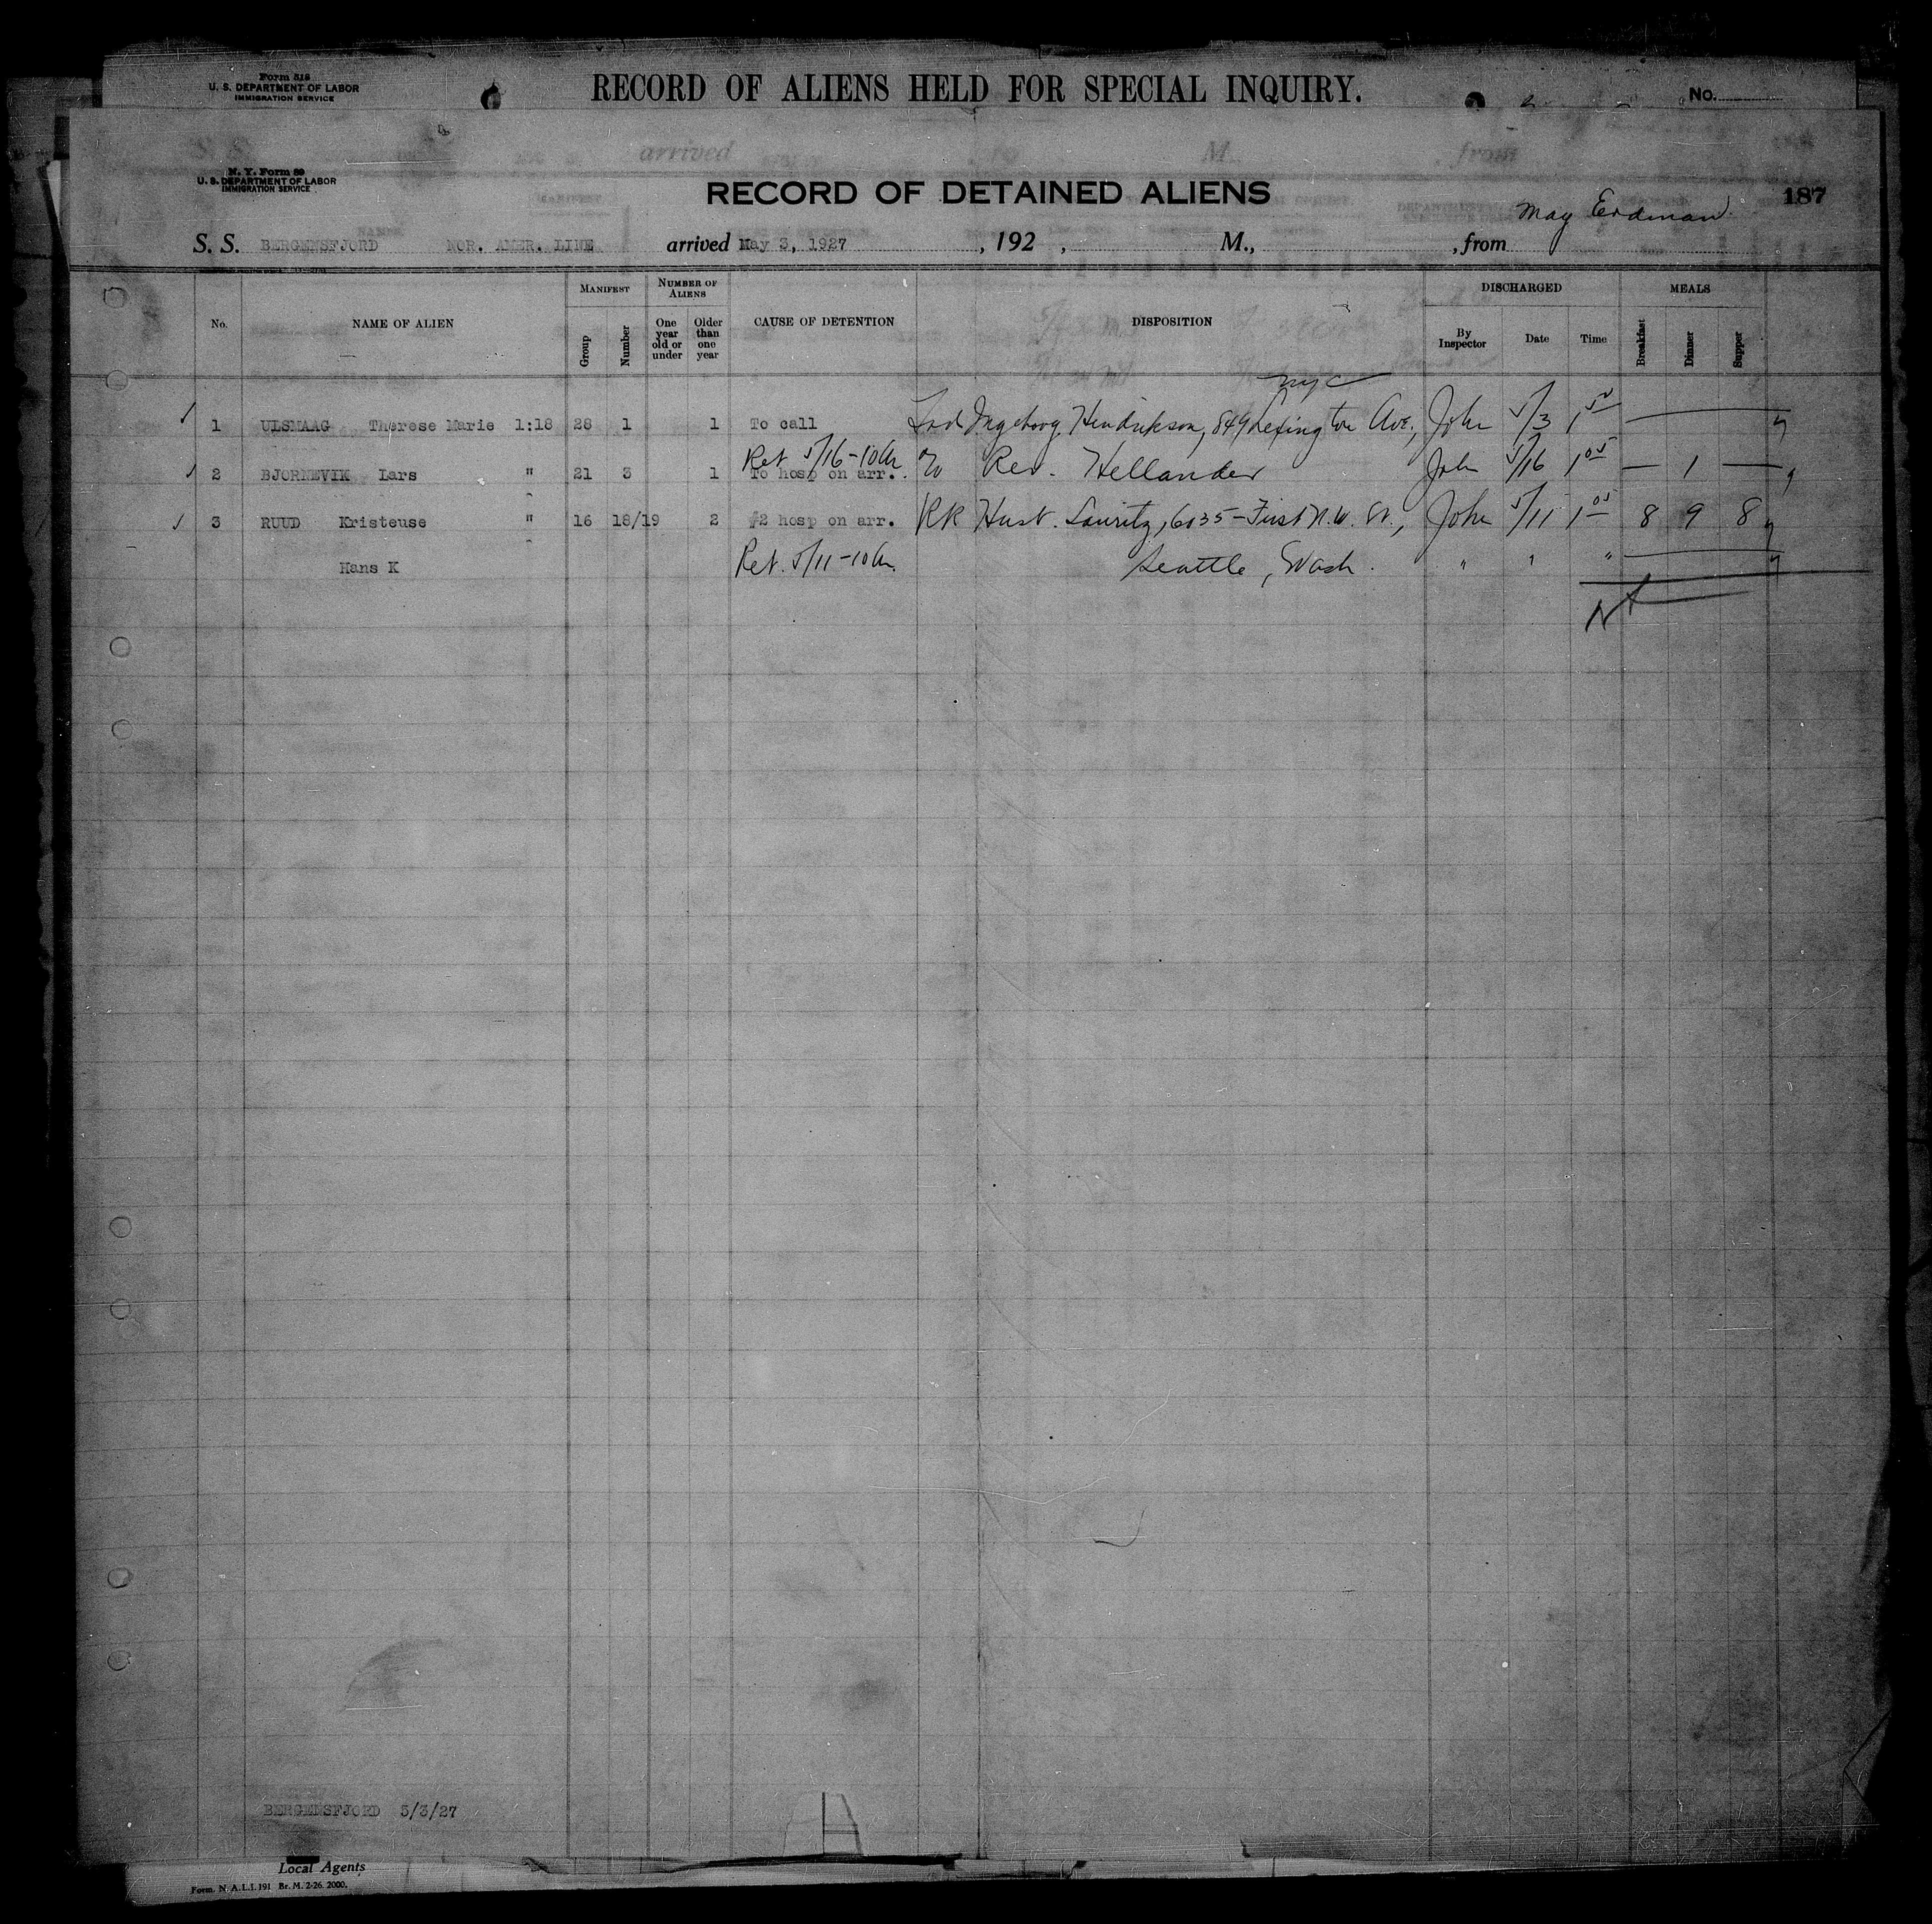 Form 518
U. S. DEPARTMENT OF LABOR
IMMIGRATION SERVICE
RECORD OF ALIENS HELD FOR SPECIAL INQUIRY.
No.
arrived M., from
N. Y. Form 89
U. S. DEPARTMENT OF LABOR
IMMIGRATION SERVICE
RECORD OF DETAINED ALIENS
187
May Erdman
S. S. BERGENSFJORD NOR. AMER. LINE arrived May 3, 1927, 192 , M., , from
No. NAME OF ALIEN MANIFEST Group Number NUMBER OF ALIENS One year old or under Older than one year CAUSE OF DETENTION DISPOSITION DISCHARGED By Inspector Date Time MEALS Breakfast Dinner Supper
NYC
1 ULSMAAG Therese Marie 1:18 28 1 1 To call Ingeborg Hendrickson, 849 Lexington Ave., John 5/3 1 50
Ret 5/16-10 Am
2 BJORNEVIK Lars " 21 3 1 To hosp on arr. % Rev. Hellander John 5/16 1 05 — 1 —
3 RUUD Kristeuse " 16 18/19 2 #2 hosp on arr. RR Husb. Lauritz, 6035-First N.W. St., John 5/11 1 05 8 9 8
Hans K Ret. 5/11-10 Am. Seattle, Wash. " " "
BERGENSFJORD 5/3/27
Local Agents
Form. N. A. L. I. 191 Br. M. 2-26. 2000.